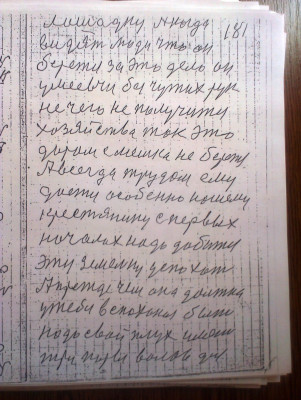 лошадку. А когда 181
видят люди что он
береты за это дело он
умеевчи без чужих рук
не чего не получиты
хозяйства так это
даром с мешка не береты
А всегда трудом ему
досты особенно нашему
крестянину с первых
началах надо добыты
эту землю успохат
А прежде чем она должна
уже бы вспохона быт
надо свой плух имет
три пары волов для